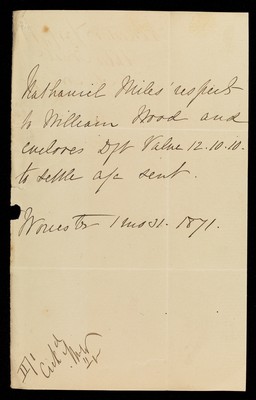 Nathaniel Miles' respects
to William Wood and
encloses Dft Value 12.10.10.
to settle a/c sent.
Worcester 1 mo 31. 1871.